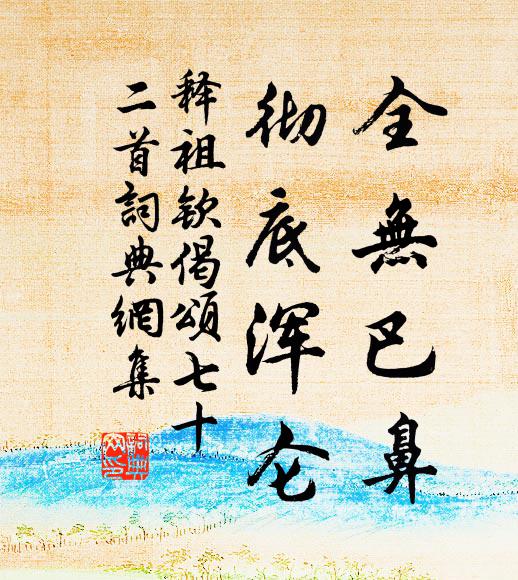 全無巴鼻
彻底浑仑
释祖钦偈颂七十
二首詞典網集